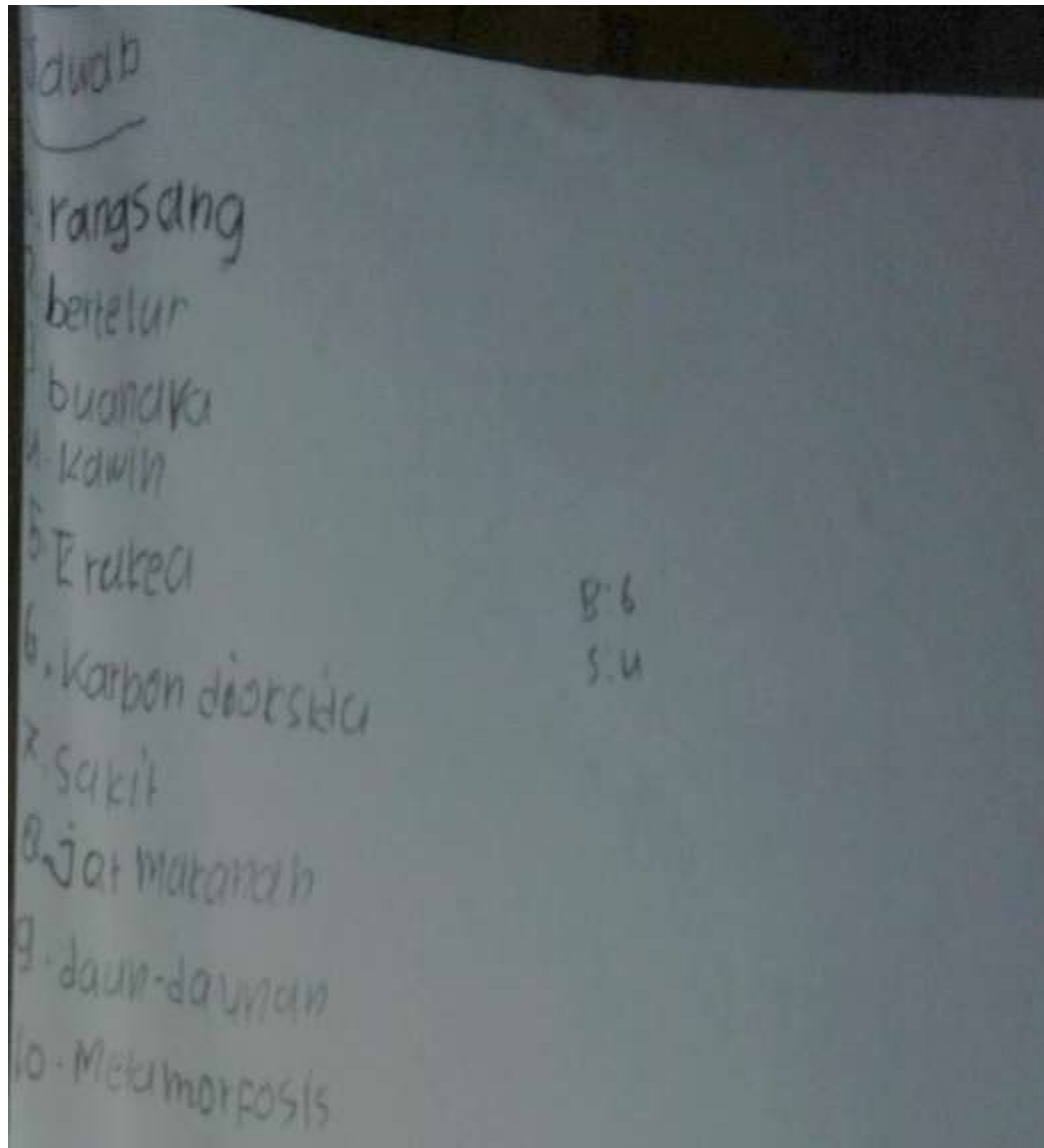 Jawab
rangsang
bertelur
buandra
4. Kawin
5. Erakea
6. Karbon dioksida
7. Sakit
8. jat makanan
9. daun-daunan
10. Metamorfosis
B: 6
S: 4